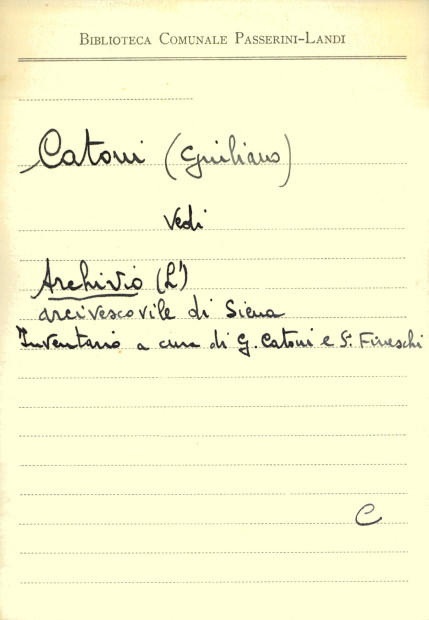 BIBLIOTECA COMUNALE PASSERINI-LANDI
Catoni (Giuliano)
Vedi
Archivio (L')
arcivescovile di Siena
Inventario a cura di G. Catoni e S. Fineschi
C